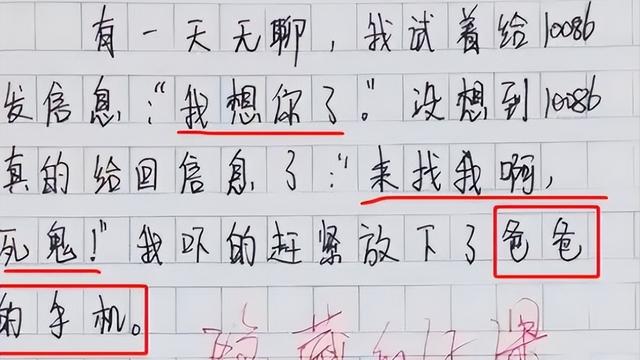 有一天无聊，我试着给10086
发信息："我想你了。"没想到10086
真的给回信息了："来找我啊，
死鬼！"我吓的赶紧放下了爸爸
的手机。
隐藏的